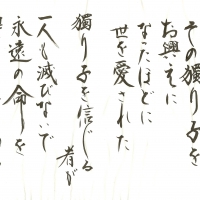 その獨り子を
お與えに
なったほどに
世を愛された
獨り子を信じる
者が
一人も滅びないで
永遠の命を